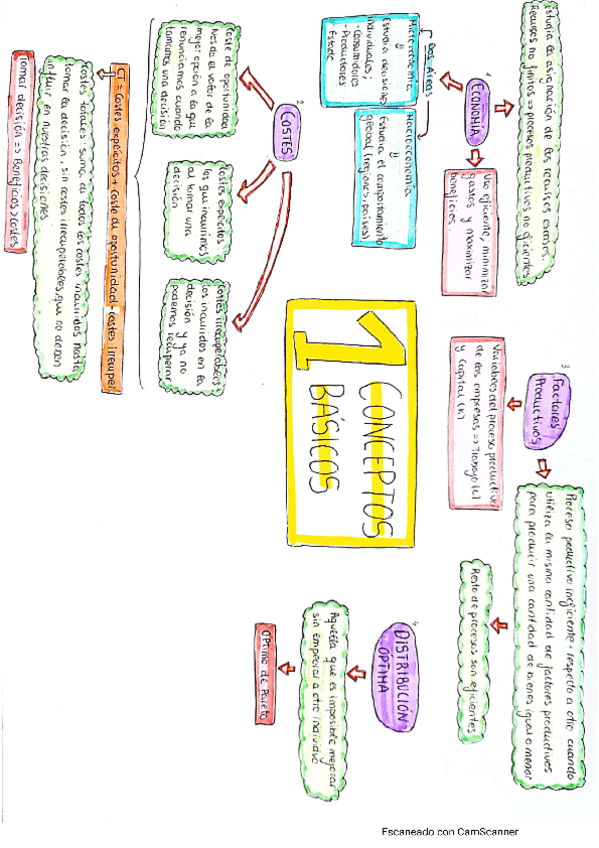 1 CONCEPTOS
BÁSICOS
1
ECONOMÍA
Estudia la asignación de los recursos escasos.
Recursos no finitos => procesos productivos no eficientes
Uso eficiente, minimizar
gastos y maximizar
beneficios.
Dos Áreas
Microeconomía
y
Estudia decisiones
individuales;
- Consumidores
- Productores
- Estado
Macroeconomía
y
Estudia el comportamiento
global (regiones, países)
2
COSTES
Coste de oportunidad
Nos da el valor de la
mejor opción a la que
renunciamos cuando
tomamos una decisión
Costes explícitos
los que inquirimos
al tomar una
decisión
Costes irrecuperables
los incurridos en la
decisión y ya no
podemos recuperar
CT = Costes explícitos + Coste de oportunidad - costes irrecuper.
Costes totales: suma de todos los costes incurridos hasta
tomar la decisión, sin costes irrecuperables, que no deben
influir en nuestras decisiones
Tomar decisión => Beneficios > costes
3
Factores
Productivos
Variables del proceso productivo
de las empresas => Trabajo (L)
y Capital (K)
Proceso productivo ineficiente respecto a otro cuando
utiliza la misma cantidad de factores productivos
para producir una cantidad de bienes igual o menor
Resto de procesos son eficientes
4
DISTRIBUCIÓN
OPTIMA
Aquella que es imposible mejorar
sin empeorar a otro individuo
Optimo de Pareto
Escaneado con CamScanner